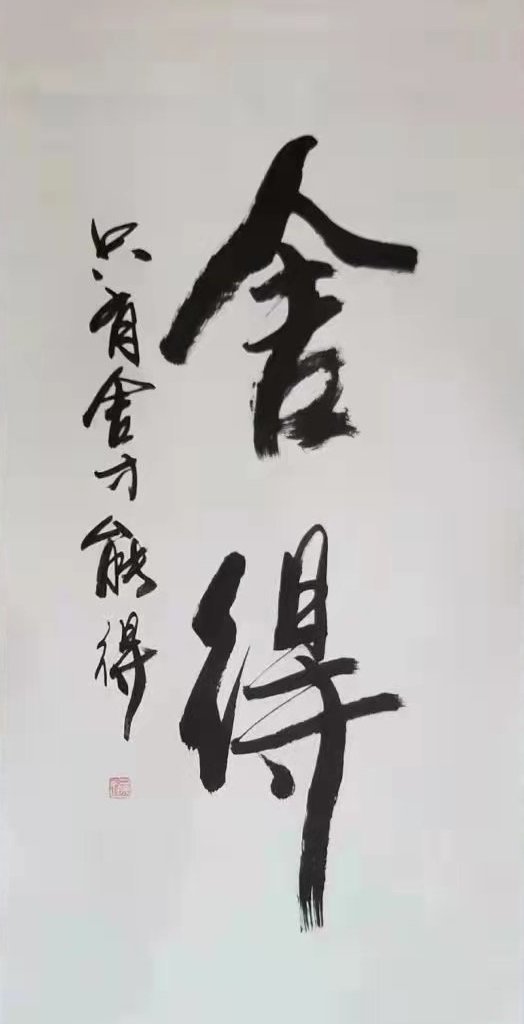 舍得
只有舍才能得